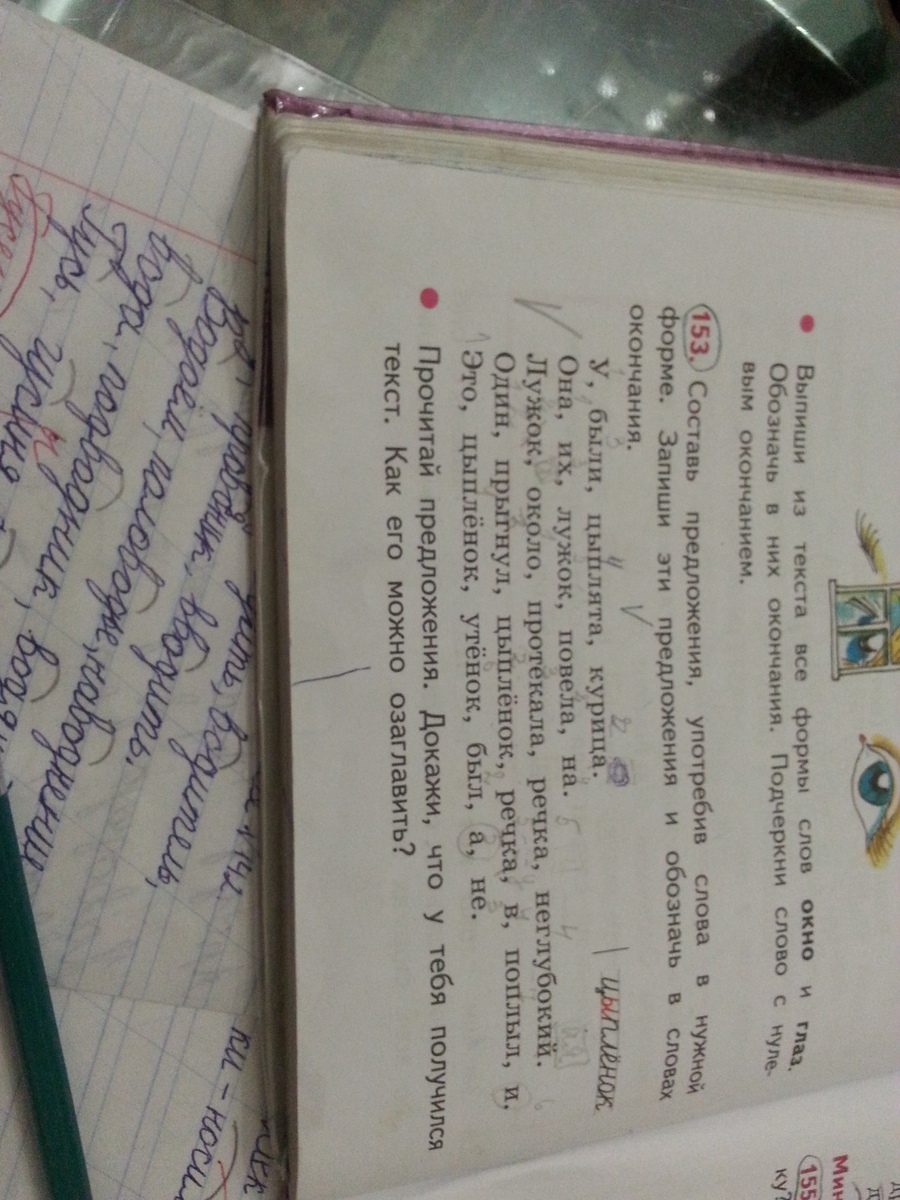 ● Выпиши из текста все формы слов окно и глаз.
Обозначь в них окончания. Подчеркни слово с нуле-
вым окончанием.
153. Составь предложения, употребив слова в нужной
форме. Запиши эти предложения и обозначь в словах
окончания.
цыплёнок
У, были, цыплята, курица.
Она, их, лужок, повела, на.
Лужок, около, протекала, речка, неглубокий.
Один, прыгнул, цыплёнок, речка, в, поплыл, и.
Это, цыплёнок, утёнок, был, а, не.
● Прочитай предложения. Докажи, что у тебя получился
текст. Как его можно озаглавить?
155
ку?
водитель,
вводить.
Вода, подводник,
Гусь,